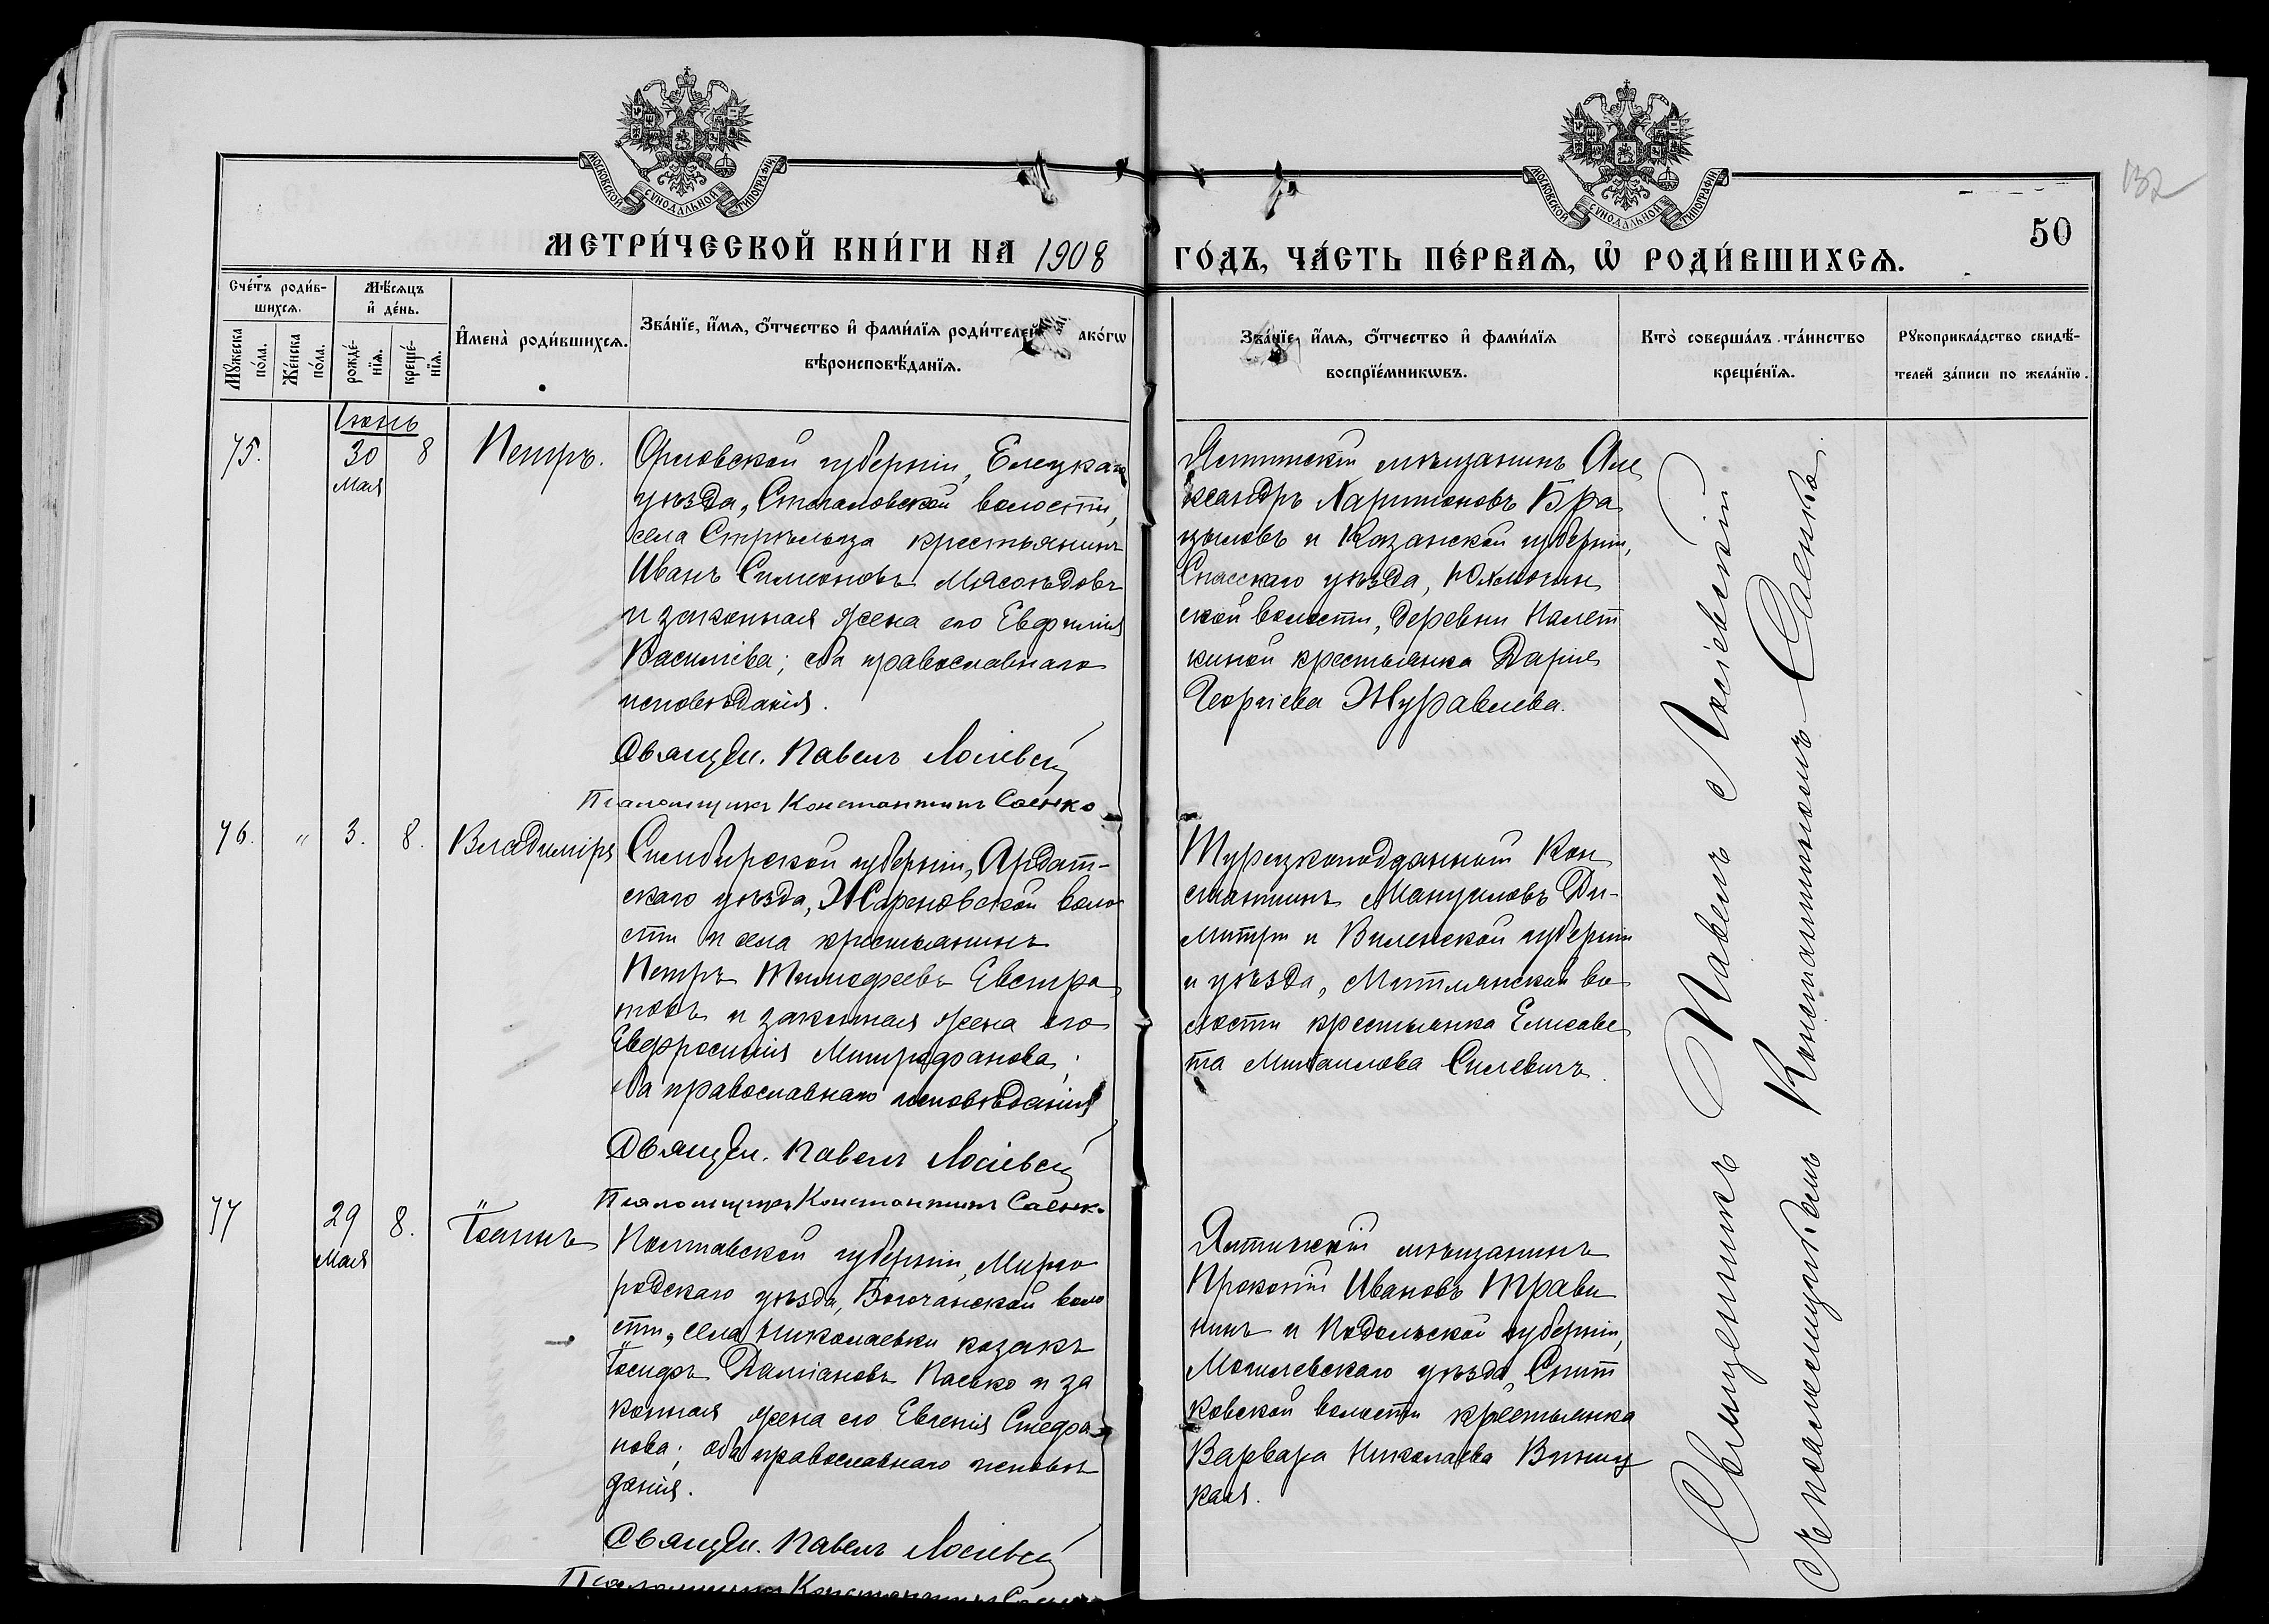 МОСКОВСКОЙ СѴНОДАЛЬНОЙ ТИПОГРАФІИ
МОСКОВСКОЙ СѴНОДАЛЬНОЙ ТИПОГРАФІИ
132
50
МЕТРИ́ЧЕСКОЙ КНИ́ГИ НА 1908 ГО́ДЪ, ЧА́СТЬ ПЕ́РВАѦ, Ѡ҆ РОДИ́ВШИХСѦ.
Сче́тъ роди́в-
шихсѧ.
Мѣ́сѧцъ
и҆ де́нь.
Мꙋ́жеска
по́ла.
Же́нска
по́ла.
рожде́-
нїѧ.
креще́-
нїѧ.
И҆мена̀ роди́вшихсѧ.
Зва́нїе, и҆́мѧ, ѻ҆́тчество и҆ фами́лїѧ роди́телей акогѡ
вѣроисповѣ́данїѧ.
Зва́нїе, и҆́мѧ, ѻ҆́тчество и҆ фами́лїѧ
воспрїе́мникѡвъ.
Кто̀ соверша́лъ та́инство
креще́нїѧ.
Рꙋкоприкла́дство свидѣ́-
телей за́писи по жела́нїю.
Іюнь
75. 30 8 Петръ.
Мая
Орловской губерніи, Елецкаго
уѣзда, Стегаловской волости,
села Стрѣльца крестьянинъ
Иванъ Симеоновъ Мясоѣдовъ
и законная жена его Евфимія
Василіева; оба православнаго
исповѣданія.
Священ. Павелъ Лосіевскій
Псаломщикъ Константинъ Саенко
Ялтинскій мѣщанинъ Але
ксандръ Харитоновъ Бра
зыловъ и Казанской губерніи,
Спасскаго уѣзда, Юхмачин
ской волости, деревни Палет
киной крестьянка Дарія
Георгіева Журавлева.
76. " 3. 8. Владиміръ
Симбирской губерніи, Ардат-
скаго уѣзда, Жареновской воло
сти и села крестьянинъ
Петръ Тимофеевъ Евстра
товъ и законная жена его
Евфросинія Митрофанова;
оба православнаго исповѣданія
Священ. Павелъ Лосіевскій
Псаломщикъ Константинъ Саенко
Турецкоподданный Кон
стантинъ Мануиловъ Ди-
митри и Виленской губерніи
и уѣзда, волости крестьянка Елисаве
та Михаилова Силевичъ.
77 29 8. Іоаннъ
Мая
Полтавской губерніи, Мирго
родскаго уѣзда, Богочанской воло
сти, села Николаевки козакъ
Іосифъ Даміановъ Пасько и за
конная жена его Евгенія Стефа
нова; оба православнаго исповѣ
данія.
Священ. Павелъ Лосіевскій
Псаломщикъ Константинъ Саенко
Ялтинскій мѣщанинъ
Прокопій Ивановъ Трави
нинъ и Подольской губерніи,
Могилевскаго уѣзда, Снит
ковской волости крестьянка
Варвара Николаева Винниц
кая.
Священникъ Павелъ Лосіевскій
съ псаломщикомъ Константиномъ Саенко.